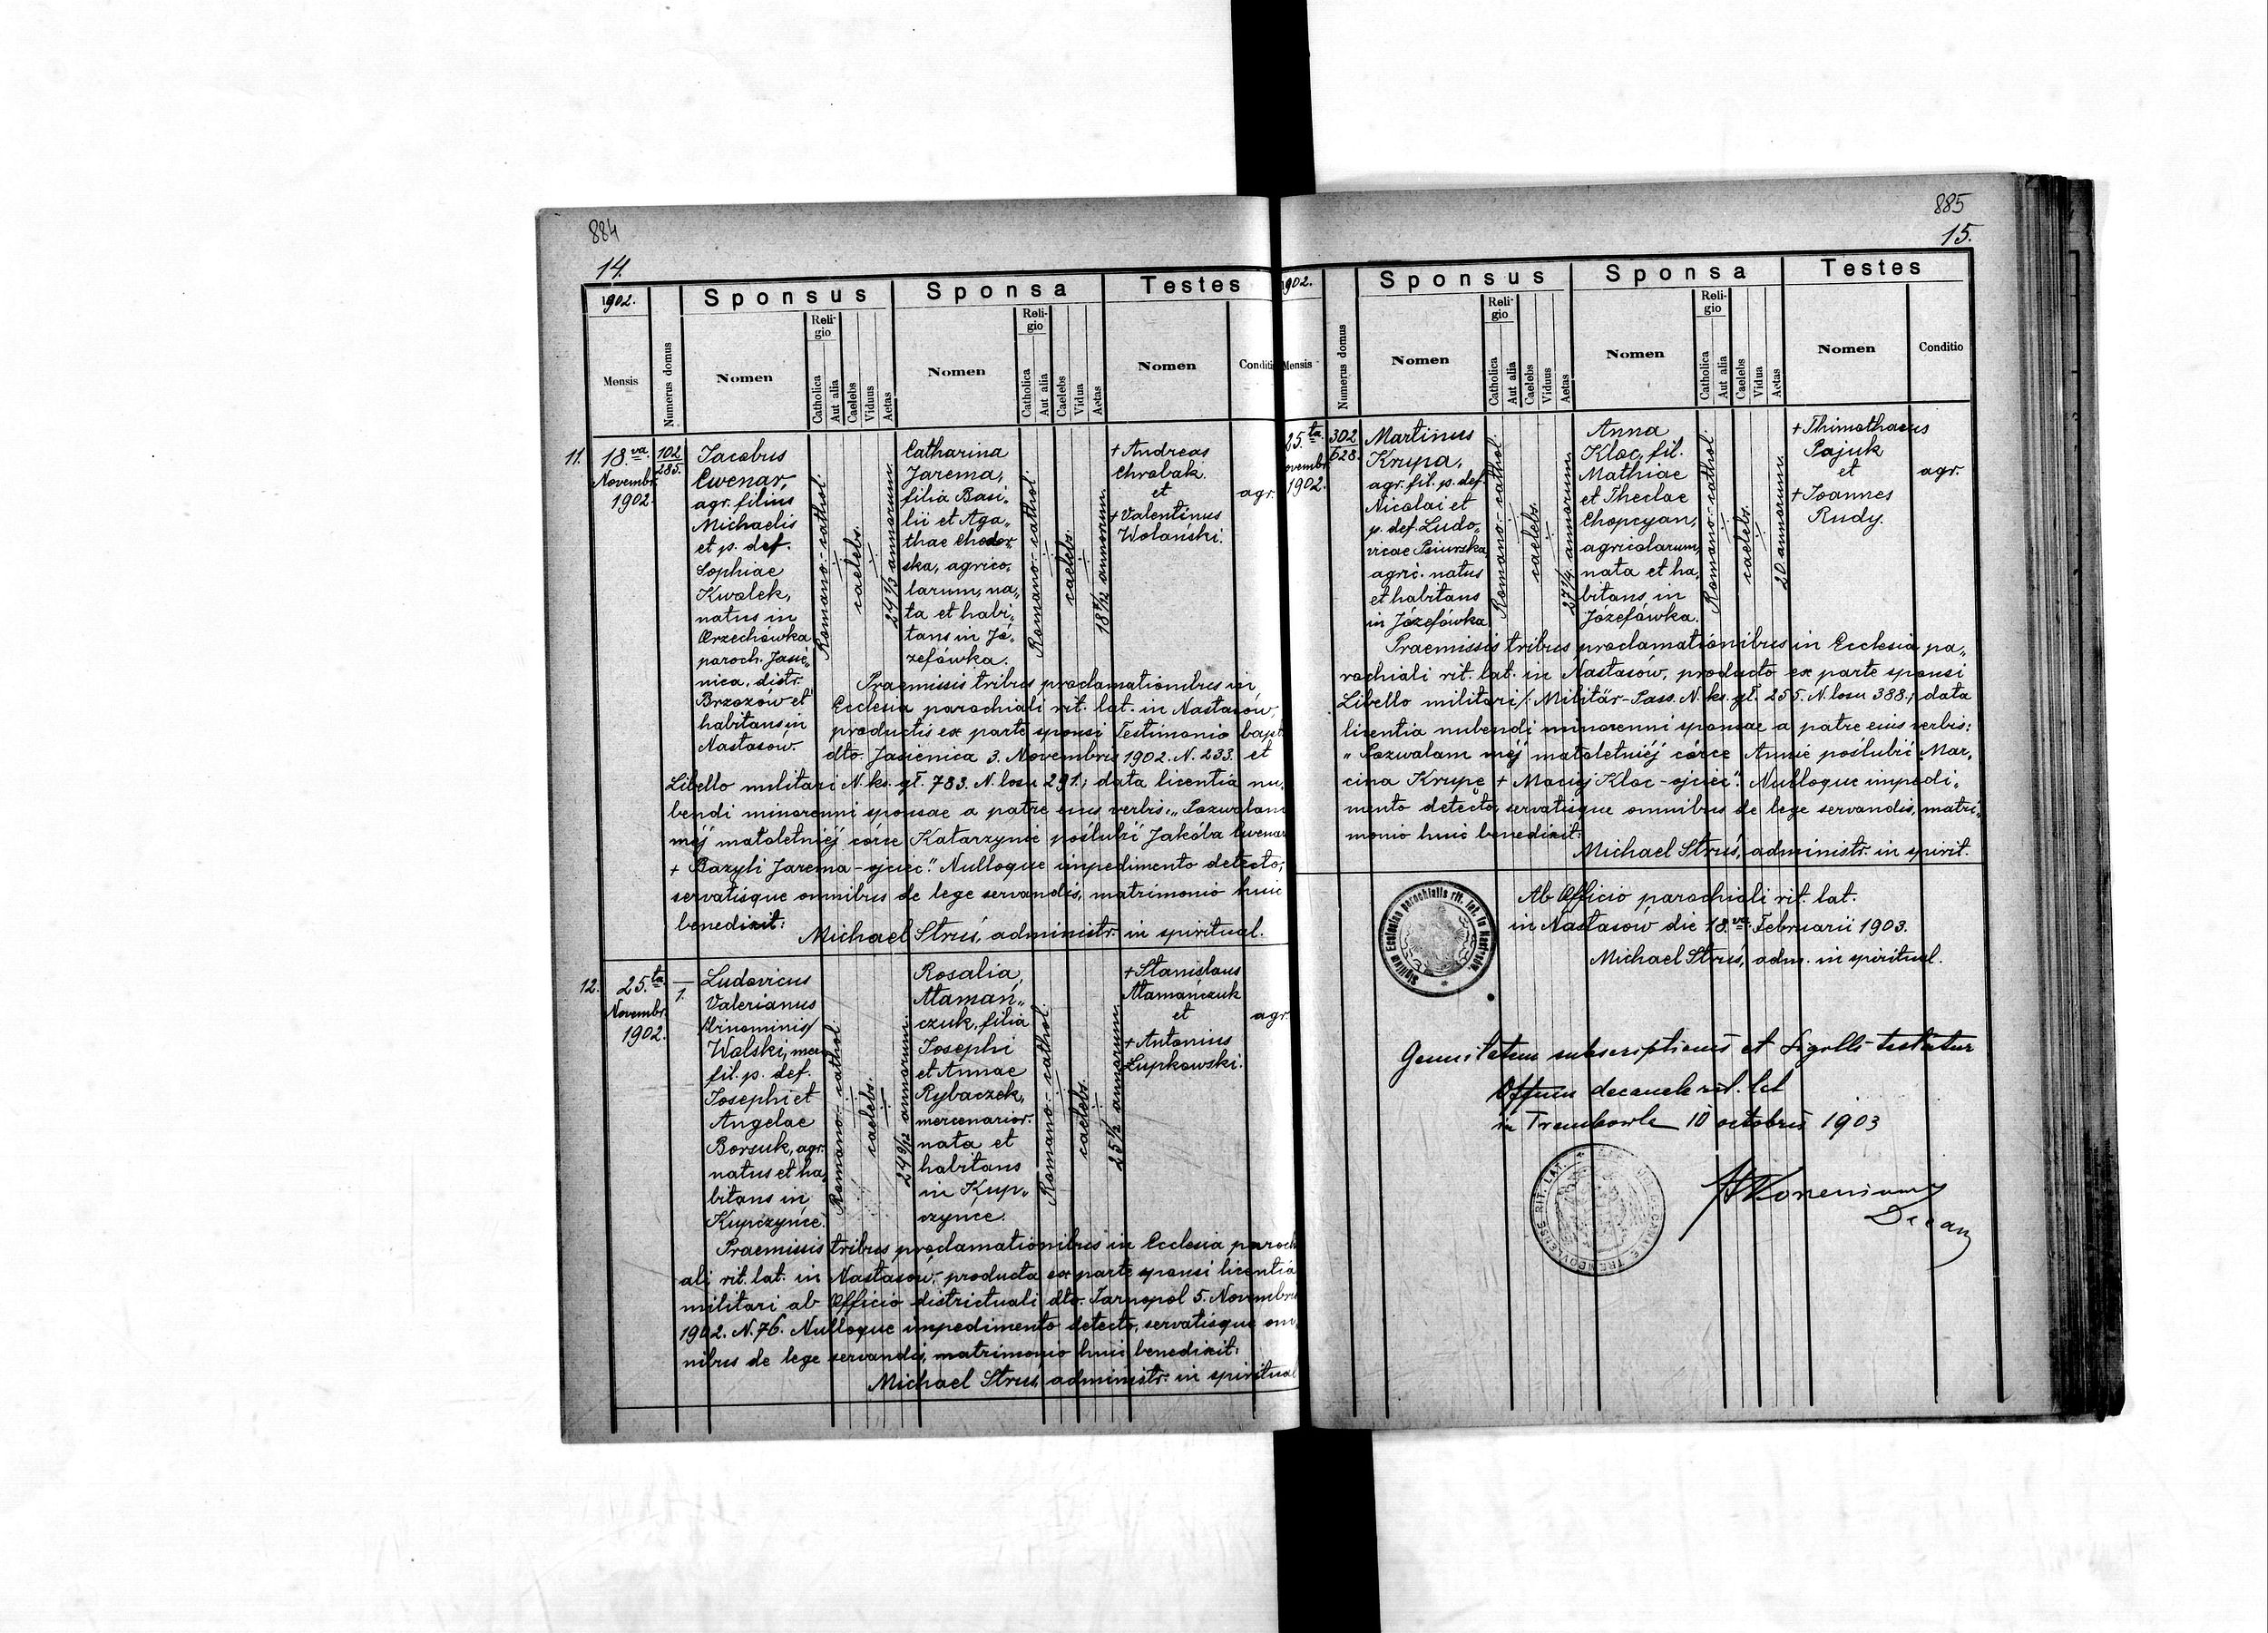 884
14.
1902.
Sponsus
Sponsa
Testes
Mensis
Numerus domus
Nomen
Reli-
gio
Catholica
Aut alia
Caelebs
Viduus
Aetas
Nomen
Reli-
gio
Catholica
Aut alia
Caelebs
Vidua
Aetas
Nomen
Conditio
11.
18.va
Novembr.
1902
102
285.
Jacobus
Cwenar,
agr. filius
Michaelis
et p. def.
Sophiae
Kwolek,
natus in
Orzechówka
paroch. Jasie„
nica, distr.
Brzozów et
habitans in
Nastasów.
Romano-cathol.
caelebs.
24 1/3 annorum.
Catharina
Jarema,
filia Basi„
lii et Aga„
thae Chodor„
ska, agrico„
larum, na„
ta et habi„
tans in Jó„
zefówka.
Romano-cathol.
caelebs.
annorum.
+ Andreas
Chrobak.
et
+ Valentinus
Wolański.
agr.
Praemissis tribus proclamationibus in
Ecclesia parochiali rit. lat. in Nastasów,
productis ex parte sponsi Testimonio bapt.
dto. Jasienica 3. Novembris 1902. N. 233. et
Libello militari N. ks. gł. 783. N. losu 291.; data licentia nu„
bendi minorenni sponsae a patre eius verbis: „Pozwalam
méj małoletniéj córce Katarzynie poślubić Jakóba Cwenar
+ Bazyli Jarema - ojciec." Nulloque impedimento detecto,
servatisque omnibus de lege servandis, matrimonio huic
benedixit:
Michael Struś, administr. in spiritual.
12.
25.ta
Novembr.
1902.
1.
Ludovicus
Valerianus
/binominis/
Wolski, merc.
fil. p. def.
Josephi et
Angelae
Borsuk, agr.
natus et ha„
bitans in
Kupczyńce.
Romano-cathol.
caelebs.
24 9/12 annorum.
Rosalia
Atamań„
czuk, filia
Josephi
et Annae
Rybaczek,
mercenarior.
nata et
habitans
in Kup„
czyńce.
Romano-cathol.
caelebs.
25 1/2 annorum.
+ Stanislaus
Atamańczuk
et
+ Antonius
Łupkowski.
agr.
Praemissis tribus proclamationibus in Ecclesia parochi
ali rit. lat. in Nastasów, producta ex parte sponsi licentia
militari ab Officio districtuali dto. Tarnopol 5. Novembris
1902. N. 76. Nulloque impedimento detecto, servatisque om„
nibus de lege servandis, matrimonio huic benedixit:
Michael Struś administr. in spiritual
885
15.
1902.
Sponsus
Sponsa
Testes
Mensis
Numerus domus
Nomen
Reli-
gio
Catholica
Aut alia
Caelebs
Viduus
Aetas
Nomen
Reli-
gio
Catholica
Aut alia
Caelebs
Vidua
Aetas
Nomen
Conditio
25.ta
Novembr.
1902.
302
528.
Martinus
Krupa,
agr. fil. p. def.
Nicolai et
p. def. Ludo„
vicae Psiurska,
agric. natus
et habitans
in Józefówka
Romano-cathol.
caelebs.
27 1/4 annorum.
Anna
Kloc, fil.
Mathiae
et Theclae
Chopcyan,
agricolarum,
nata et ha„
bitans in
Józefówka.
Romano-cathol.
caelebs.
20 annorum.
+ Thimothaeus
Pajuk
et
+ Joannes
Rudy.
agr.
Praemissis tribus proclamationibus in Ecclesia pa„
rochiali rit. lat. in Nastasów, producto ex parte sponsi
Libello militari /: Militär-Pass. N. ks. gł. 255. N. losu 388.; data
licentia nubendi minorenni sponsae a patre eius verbis:
„Pozwalam méj małoletniéj córce Annie poślubić Mar„
cina Krupę + Maciej Kloc - ojciec". Nulloque impedi„
mento detecto, servatisque omnibus de lege servandis, matri„
monio huic benedixit:
Michael Struś, administr. in spirit.
Sigillum Ecclesiae parochialis rit. lat. in Nastasów.
Ab Officio parochiali rit. lat.
in Nastasów die 18.va Februarii 1903.
Michael Struś, adm. in spiritual.
subscriptionis et Sigilli testatur
decanale rit. lat
in Trembowla 10 octobris 1903
RIT. LAT.
Decan